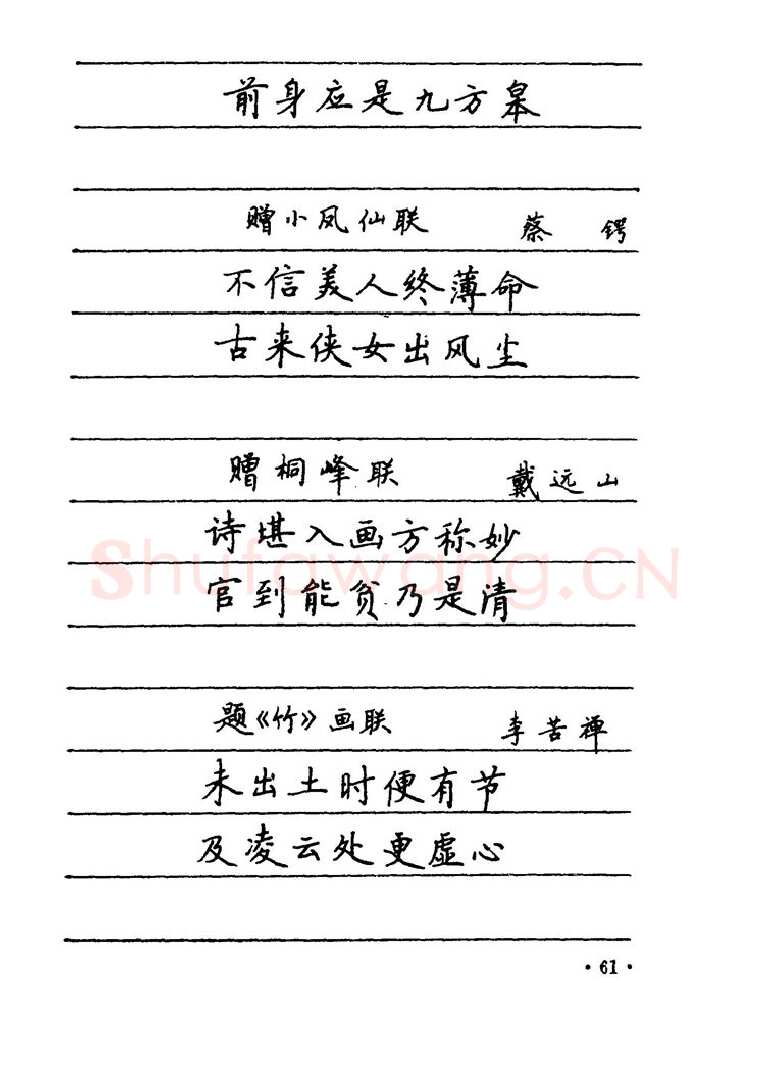 前身应是九方皋
赠小凤仙联 蔡锷
不信美人终薄命
古来侠女出风尘
赠桐峰联 戴远山
诗堪入画方称妙
官到能贫乃是清
Shufawang.CN
题《竹》画联 李苦禅
未出土时便有节
及凌云处更虚心
·61·